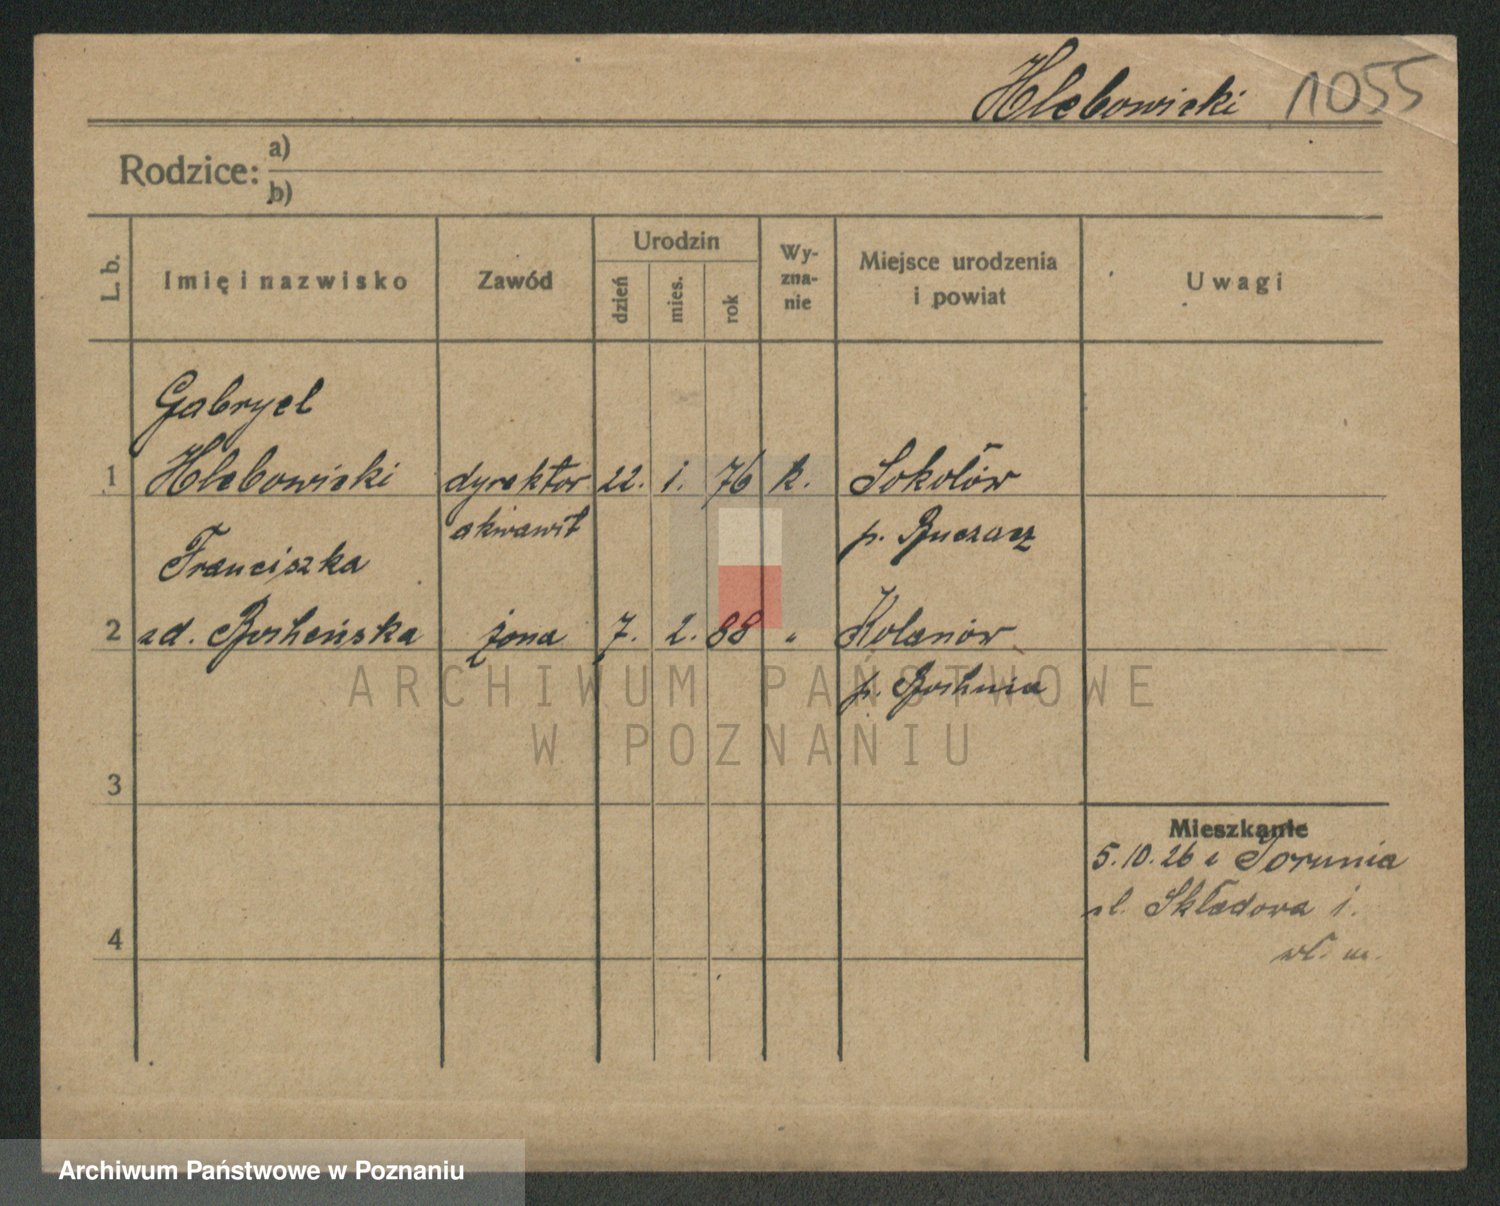 Hlebowicki 1055
Rodzice: a)
b)
L. b.
Imię i nazwisko
Zawód
Urodzin
dzień
mies.
rok
Wy-
zna-
nie
Miejsce urodzenia
i powiat
Uwagi
Gabryel
1 Hlebowicki dyrektor 22. 1. 76 k. Sokołów
akwawit p. Buczacz
Franciszka
2 zd. Bocheńska żona 7. 2. 88 " Kolanów
p. Bochnia
3
Mieszkanie
5.10.26 z Torunia
ul. Składowa 1.
4
wł. m.
ARCHIWUM PAŃSTWOWE
W POZNANIU
Archiwum Państwowe w Poznaniu